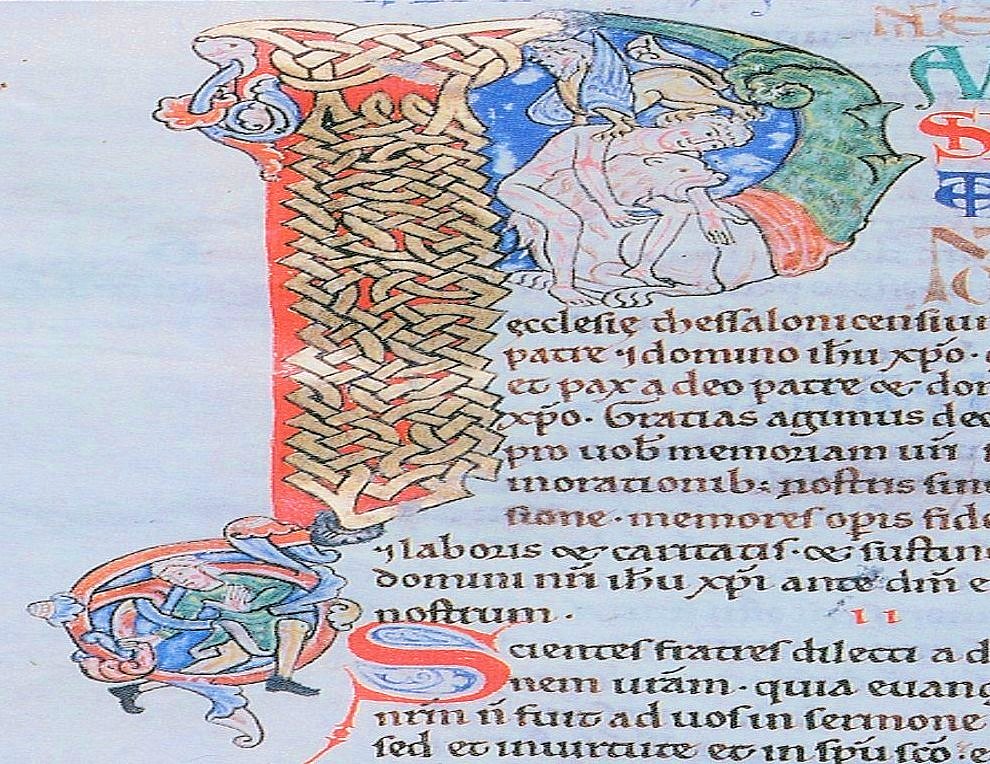 P
ęcclesię thessalonicensiu
patre ⁊ domino ihu xp̄o ·
et pax a deo patre & dom
xp̄o · Gratias agimus deo
pro uob̄ memoriam urī
in orationib: nostris sine
sione · memores op̄is fide
⁊ laboris & caritatis · & sustin
domini nr̄i ihu xp̄i ante dm̄ e
nostrum ·
II
Scientes fratres dilecti a d
nem ur̄am · quia euang
nrm n̄ fuit ad uos in sermone
sed et in uirtute et in sp̄u sc̄o · e